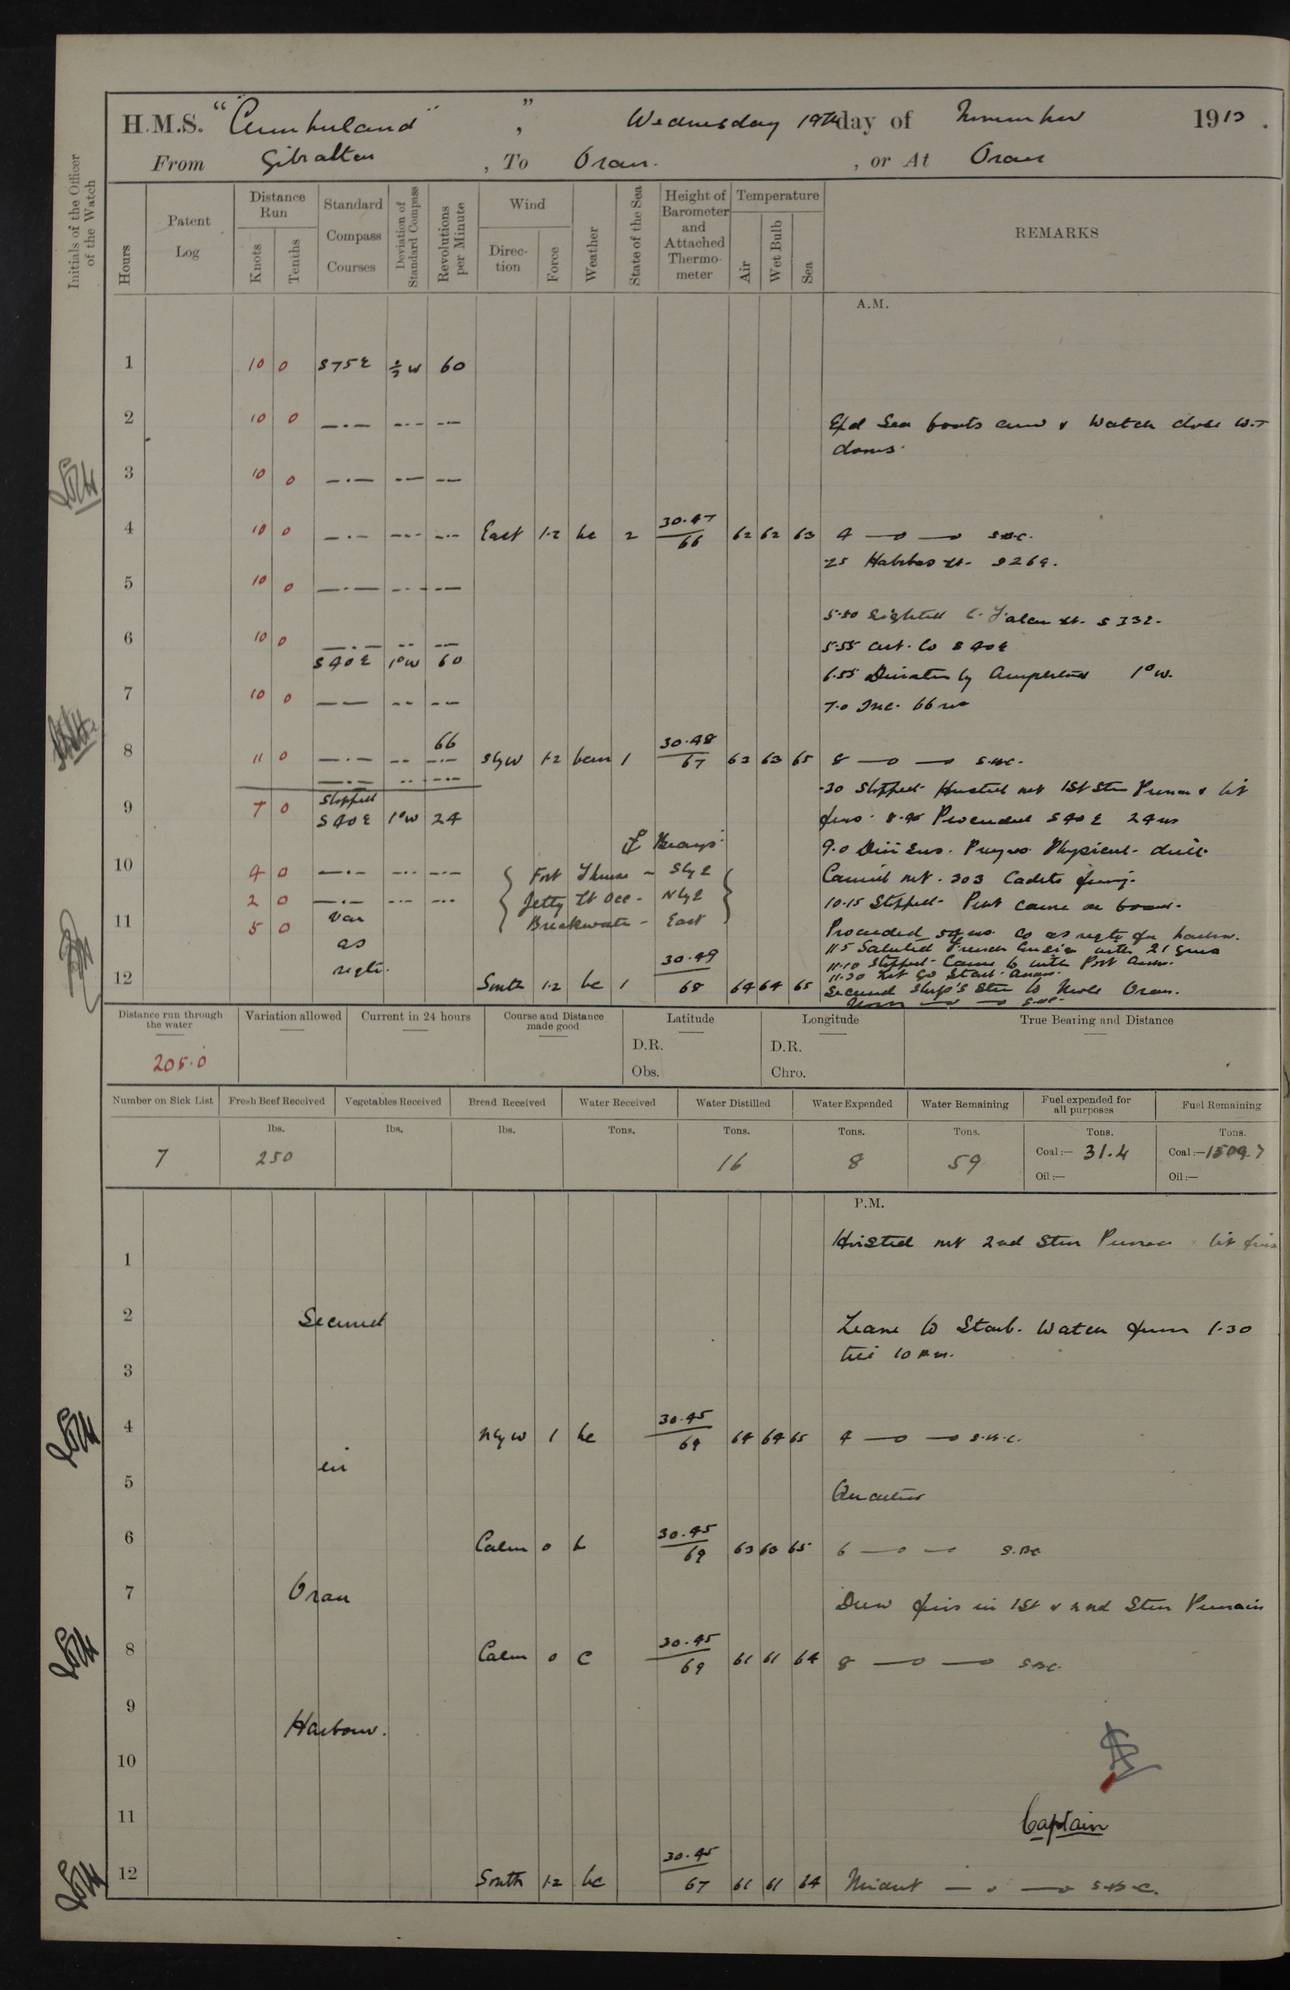 H.M.S. "Cumberland", Wednesday 19th day of November 1913.
From Gibraltar, To Oran. , or At Oran
Initials of the Officer of the Watch
Hours
Patent Log
Distance Run
Knots Tenths
Standard Compass Courses
Deviation of Standard Compass
Revolutions per Minute
Wind
Direction Force
Weather
State of the Sea
Height of Barometer and Attached Thermometer
Temperature
Air Wet Bulb Sea
REMARKS
A.M.
1 10 0 S75E 60
2 10 0 —·— —·— —·—
Exd Sea boats crew & Watch close W.T
doors.
3 10 0 —·— —·— —
4 10 0 —·— —·— —·— East 1-2 bc 2 30.47 66 62 62 63 4 —o —o S.B.C.
25 Habibas Lt. S26E.
5 10 0 —·— —·— —
5.50 Sighted C. Falcon Lt. S 33E.
6 10 0 —·— — —
S40E 1°W 60
5.55 alt. Co S40E
6.55 Deviation by Amplitude 1°W.
7 10 0 — — —
7.0 Inc. 66 revs
66
8 11 0 —·— — —·— SbyW 1-2 bcm 1 30.48 67 63 63 65 8 —o —o S.B.C.
—·— — —·—
.30 Stopped. Hoisted out 1st Stm Pinnace & lit
9 7 0 Stopped
S40E 1°W 24
fires. 8.45 Proceeded S40E 24 revs
9.0 Divisions. Prayers. Physical drill.
10 4 0 —·— —·— —·—
Fort Thérèse - SbyE
Carried out .303 Cadets firing.
2 0 —·— —·— —·—
Jetty Lt Occ - NbyE
10.15 Stopped. Pilot came on board.
11 5 0 Var
Breakwater - East
Proceeded Co as reqte for harbour.
as
11.5 Saluted French Ensign with 21 guns
reqte.
11.10 Stopped. Came to with Port Anchor.
11.30 Let go Starb. Anchor.
12 South 1-2 bc 1 30.49 68 64 64 65 Secured ship's Stern to Mole Oran.
Noon —o —o S.B.C.
Distance run through the water
205.0
Variation allowed
Current in 24 hours
Course and Distance made good
Latitude
D.R.
Obs.
Longitude
D.R.
Chro.
True Bearing and Distance
Number on Sick List Fresh Beef Received Vegetables Received Bread Received Water Received Water Distilled Water Expended Water Remaining Fuel expended for all purposes Fuel Remaining
lbs. lbs. lbs. Tons. Tons. Tons. Tons. Tons. Tons.
7 250 16 8 59 Coal:— 31.4 Coal:— 1509.7
Oil:— Oil:—
P.M.
Hoisted out 2nd Stm Pinnace & lit fires
1
2 Secured
Leave to Starb. Watch from 1.30
till 10 P.M.
3
4 NbyW 1 bc 30.45 69 64 64 65 4 —o —o S.B.C.
in
5
Quarters
6 Calm 0 b 30.45 69 63 63 65 6 —o — S.B.C
7 Oran
Drew fires in 1st & 2nd Stm Pinnaces
8 Calm 0 C 30.45 69 61 61 64 8 —o —o S.B.C.
9
Harbour.
10
11
Captain
12 South 1-2 bc 30.45 67 61 61 64 Midnt —o —o S.B.C.